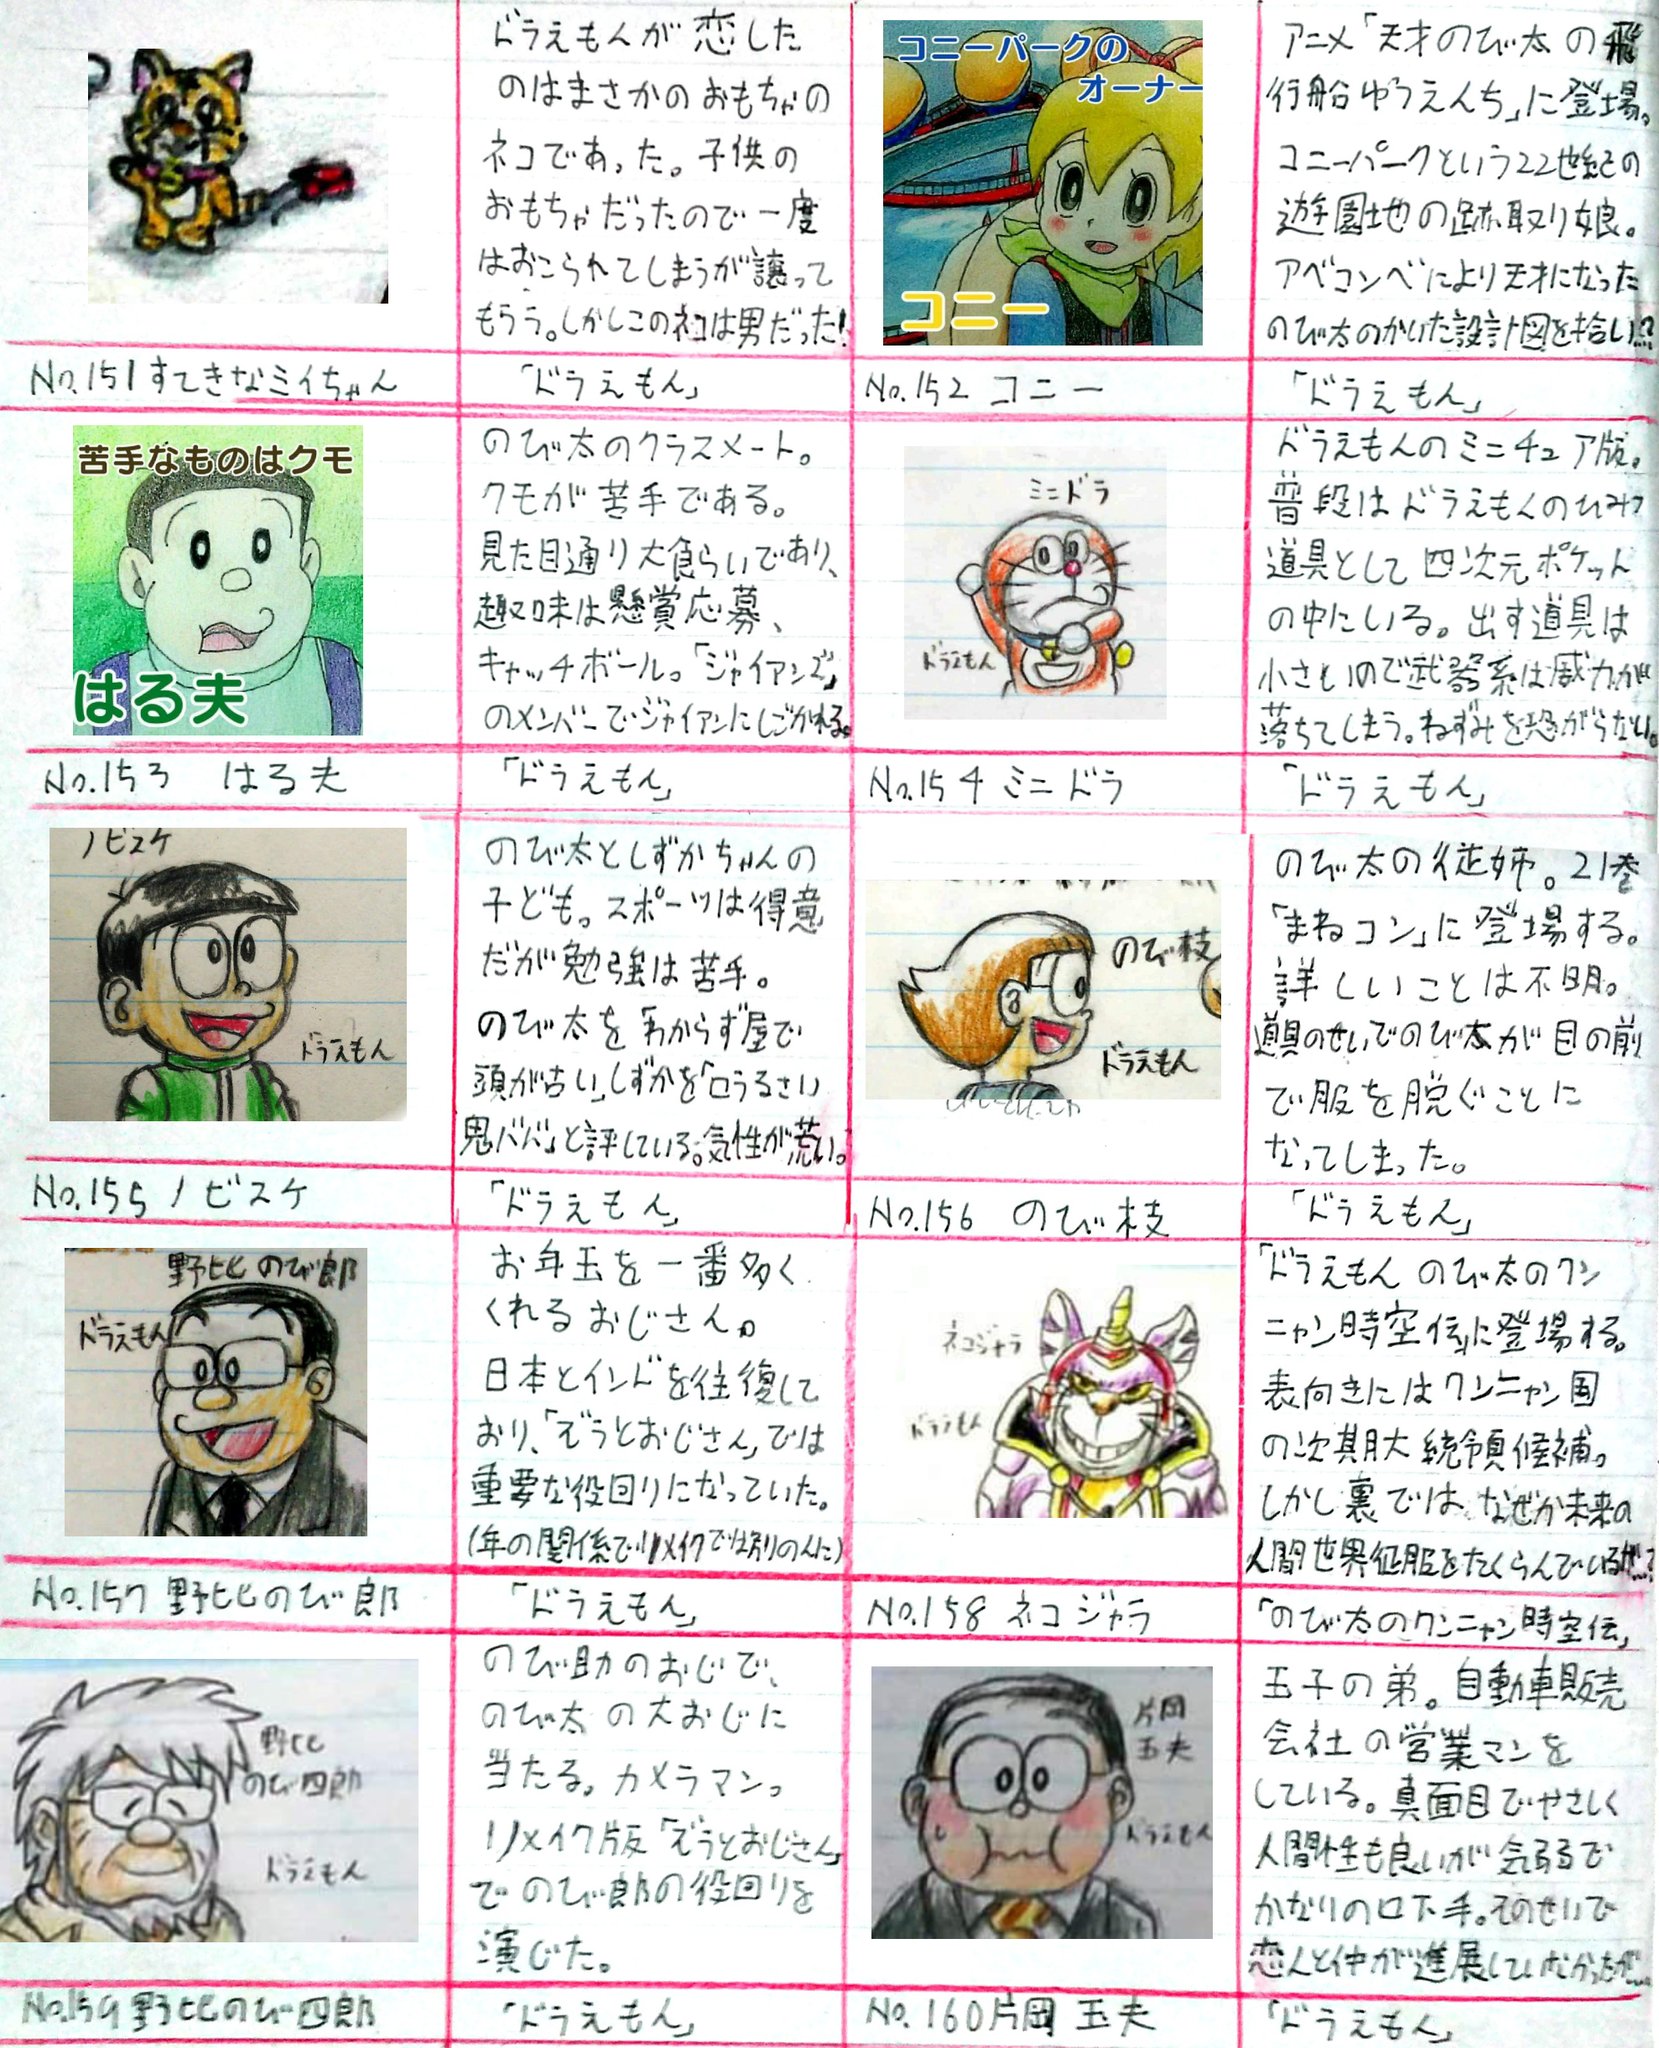 ドラえもんが恋した
のはまさかのおもちゃの
ネコであった。子供の
おもちゃだったので一度
はおこられてしまうが譲って
もらう。しかしこのネコは男だった!
No.151すてきなミイちゃん
「ドラえもん」
コニーパークの
オーナー
コニー
アニメ「天才のび太の飛
行船ゆうえんち」に登場。
コニーパークという22世紀の
遊園地の跡取り娘。
アベコンベにより天才になった
のび太のかいた設計図を拾い!?
No.152 コニー
「ドラえもん」
苦手なものはクモ
はる夫
のび太のクラスメート。
クモが苦手である。
見た目通り大食らいであり、
趣味は懸賞応募、
キャッチボール。「ジャイアンズ」
のメンバーでジャイアンにしごかれる。
No.153 はる夫
「ドラえもん」
ミニドラ
ドラえもん
ドラえもんのミニチュア版。
普段はドラえもんのひみつ
道具として四次元ポケット
の中にいる。出す道具は
小さいので武器系は威力が
落ちてしまう。ねずみを恐がらない。
No.154 ミニドラ
「ドラえもん」
ノビスケ
ドラえもん
のび太としずかちゃんの
子ども。スポーツは得意
だが勉強は苦手。
のび太を「わからず屋で
頭が古い」しずかを「口うるさい
鬼ババ」と評している。気性が荒い。
No.155 ノビスケ
「ドラえもん」
のび枝
ドラえもん
のび太の従姉。21巻
「まねコン」に登場する。
詳しいことは不明。
道具のせいでのび太が目の前
で服を脱ぐことに
なってしまった。
No.156 のび枝
「ドラえもん」
野比のび郎
ドラえもん
お年玉を一番多く
くれるおじさん。
日本とインドを往復して
おり、「ぞうとおじさん」では
重要な役回りになっていた。
(年の関係でリメイクでは別の人に)
No.157 野比のび郎
「ドラえもん」
ネコジャラ
ドラえもん
「ドラえもん のび太のワン
ニャン時空伝」に登場する。
表向きにはワンニャン国
の次期大統領候補。
しかし裏では、なぜか未来の
人間世界征服をたくらんでいるが…?
No.158 ネコジャラ
「のび太のワンニャン時空伝」
野比
のび四郎
ドラえもん
のび助のおじで、
のび太の大おじに
当たる。カメラマン。
リメイク版「ぞうとおじさん」
でのび郎の役回りを
演じた。
No.159 野比のび四郎
「ドラえもん」
片岡
玉夫
ドラえもん
玉子の弟。自動車販売
会社の営業マンを
している。真面目でやさしく
人間性も良いが気弱で
かなりの口下手。そのせいで
恋人と仲が進展していなかったが…
No.160片岡 玉夫
「ドラえもん」